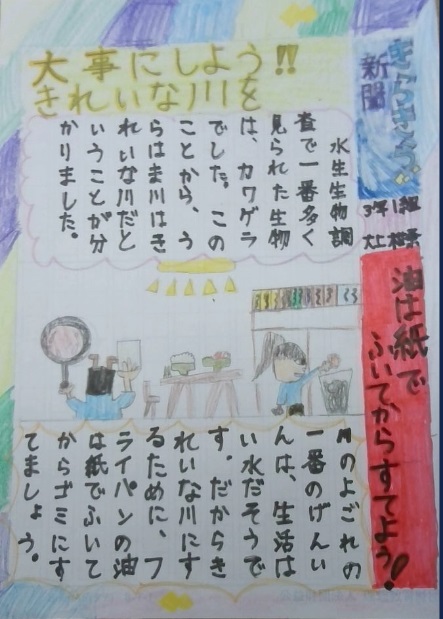 きらきら
新聞
3年1組
大事にしよう!!
きれいな川を
水生生物調
査で一番多く
見られた生物
は、カワゲラ
でした。この
ことから、う
らはま川はき
れいな川だと
いうことが分
かりました。
油は紙で
ふいてからすてよう!
川のよごれの
一番のげんい
んは、生活は
い水だそうで
す。だからき
れいな川にす
るために、フ
ライパンの油
は紙でふいて
からゴミにす
てましょう。